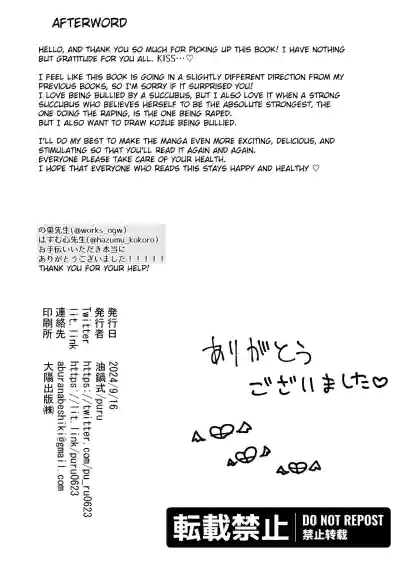 AFTERWORD
HELLO, AND THANK YOU SO MUCH FOR PICKING UP THIS BOOK! I HAVE NOTHING
BUT GRATITUDE FOR YOU ALL. KISS…♡
I FEEL LIKE THIS BOOK IS GOING IN A SLIGHTLY DIFFERENT DIRECTION FROM MY
PREVIOUS BOOKS, SO I'M SORRY IF IT SURPRISED YOU!
I LOVE BEING BULLIED BY A SUCCUBUS, BUT I ALSO LOVE IT WHEN A STRONG
SUCCUBUS WHO BELIEVES HERSELF TO BE THE ABSOLUTE STRONGEST, THE
ONE DOING THE RAPING, IS THE ONE BEING RAPED.
BUT I ALSO WANT TO DRAW KOZUE BEING BULLIED.
I'LL DO MY BEST TO MAKE THE MANGA EVEN MORE EXCITING, DELICIOUS, AND
STIMULATING SO THAT YOU'LL READ IT AGAIN AND AGAIN.
EVERYONE PLEASE TAKE CARE OF YOUR HEALTH.
I HOPE THAT EVERYONE WHO READS THIS STAYS HAPPY AND HEALTHY ♡
の巣先生(@works_ogw)
はすむ心先生(@hazumu_kokoro)
お手伝いいただき本当に
ありがとうございました！！！！！
THANK YOU FOR YOUR HELP!
発行日 2024/9/16
発行者 油鍋弐/puru
Twitter https://twitter.com/pu_ru0623
lit.link https://lit.link/puru0623
連絡先 aburanabeshiki@gmail.com
印刷所 大陽出版㈱
ありがとう
ございました♡
転載禁止
DO NOT REPOST
禁止转载